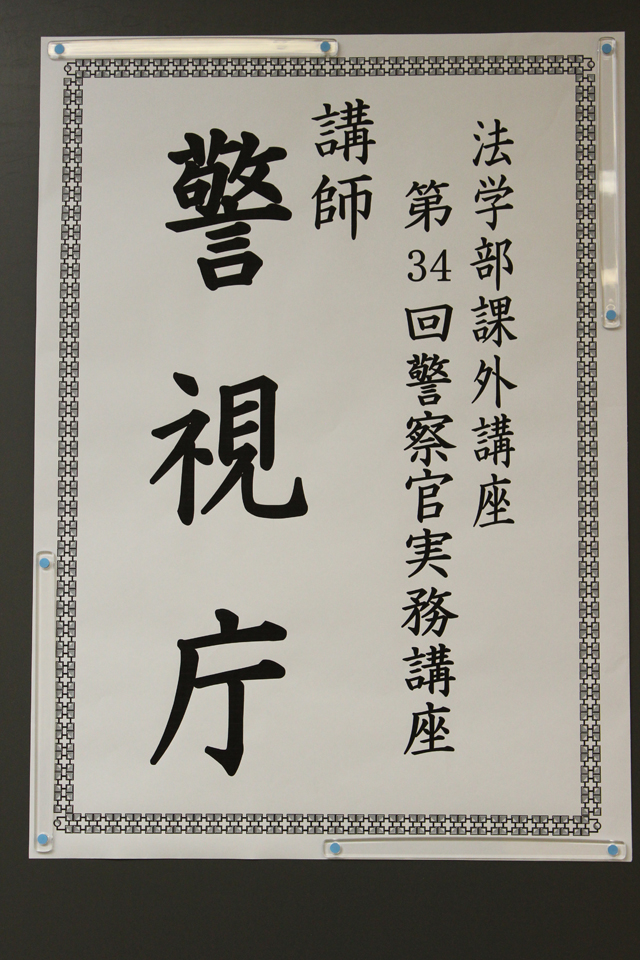 法学部課外講座
第34回警察官実務講座
講師
警視庁